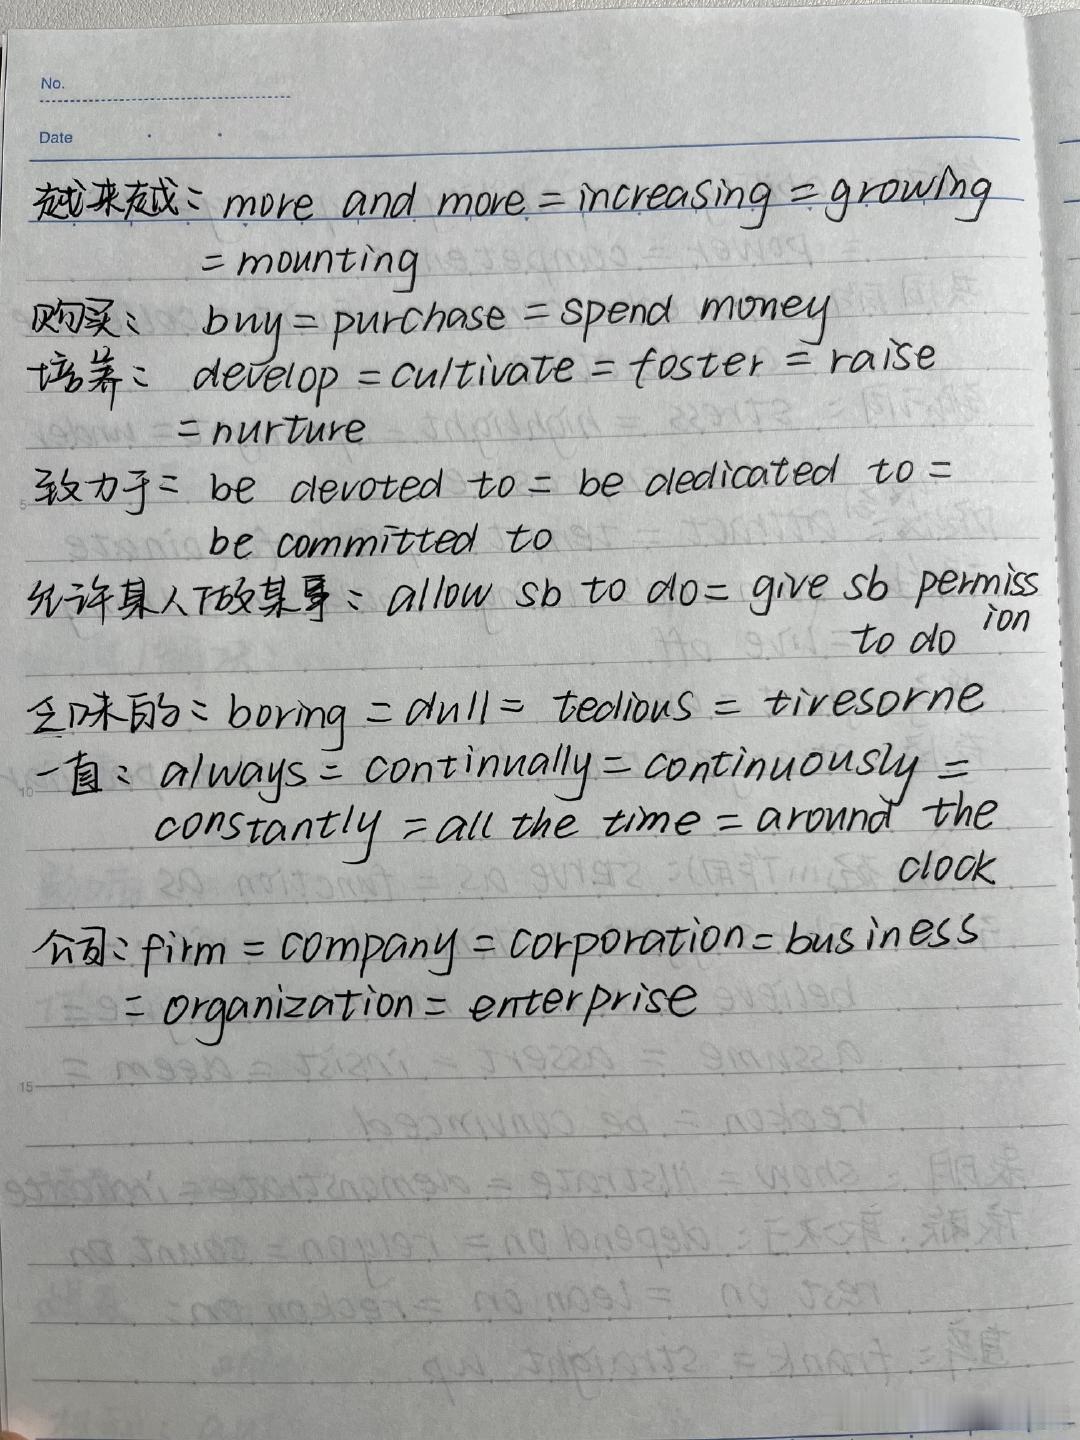 No.
Date
越来越: more and more = increasing = growing
= mounting
购买: buy = purchase = spend money
培养: develop = cultivate = foster = raise
= nurture
致力于: be devoted to = be dedicated to =
be committed to
允许某人做某事: allow sb to do = give sb permiss
ion
to do
乏味的: boring = dull = tedious = tiresome
一直: always = continually = continuously =
constantly = all the time = around the
clock
公司: firm = company = corporation = business
= organization = enterprise
5
10
15